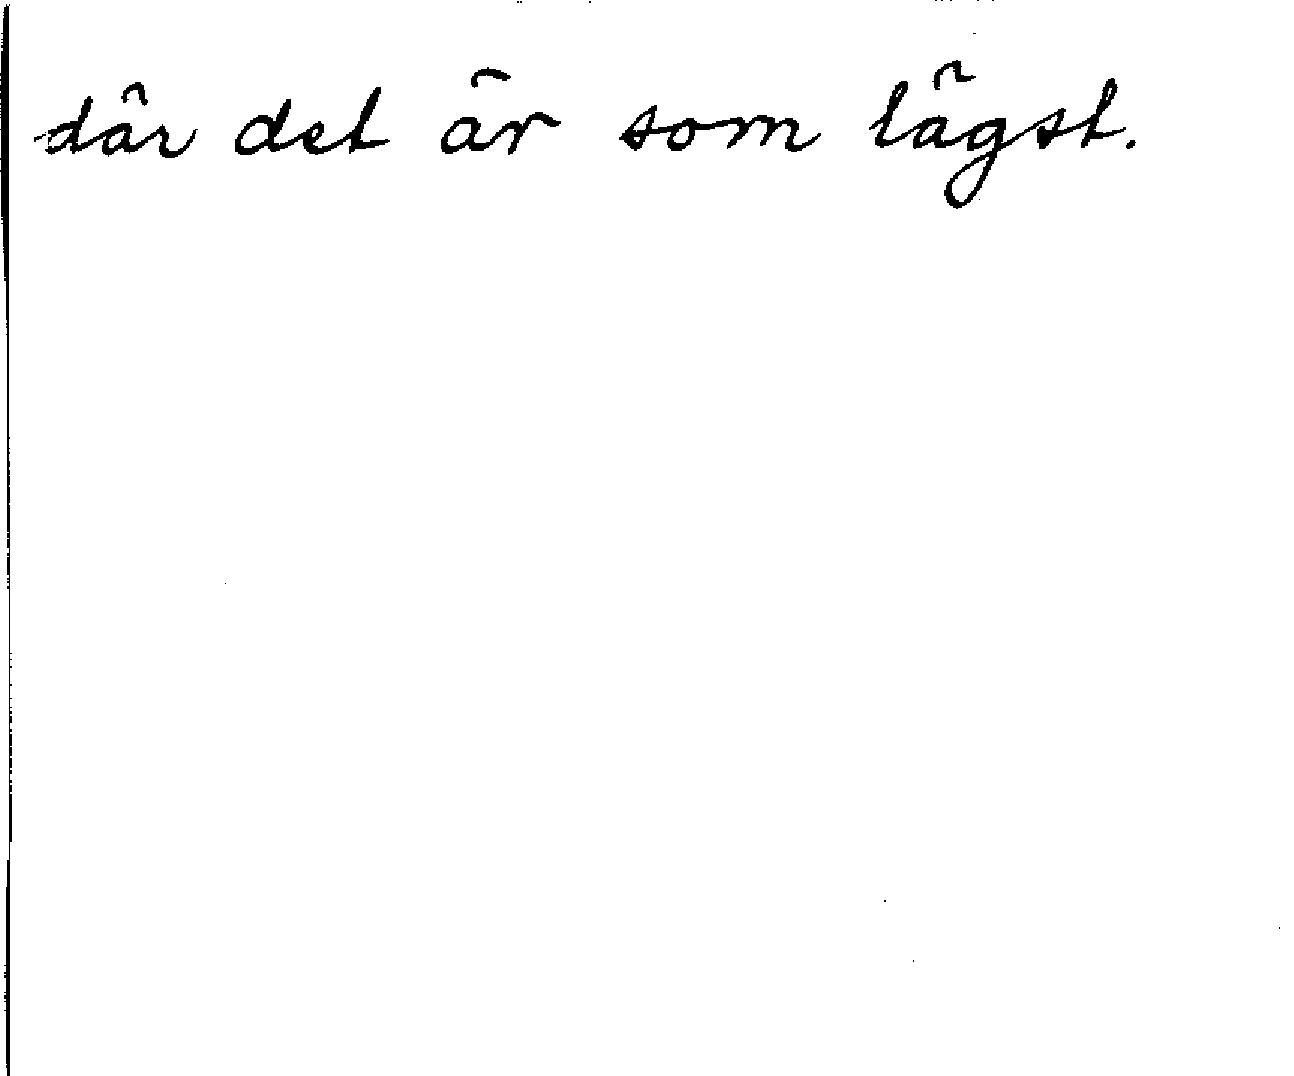 där det är som lägst.